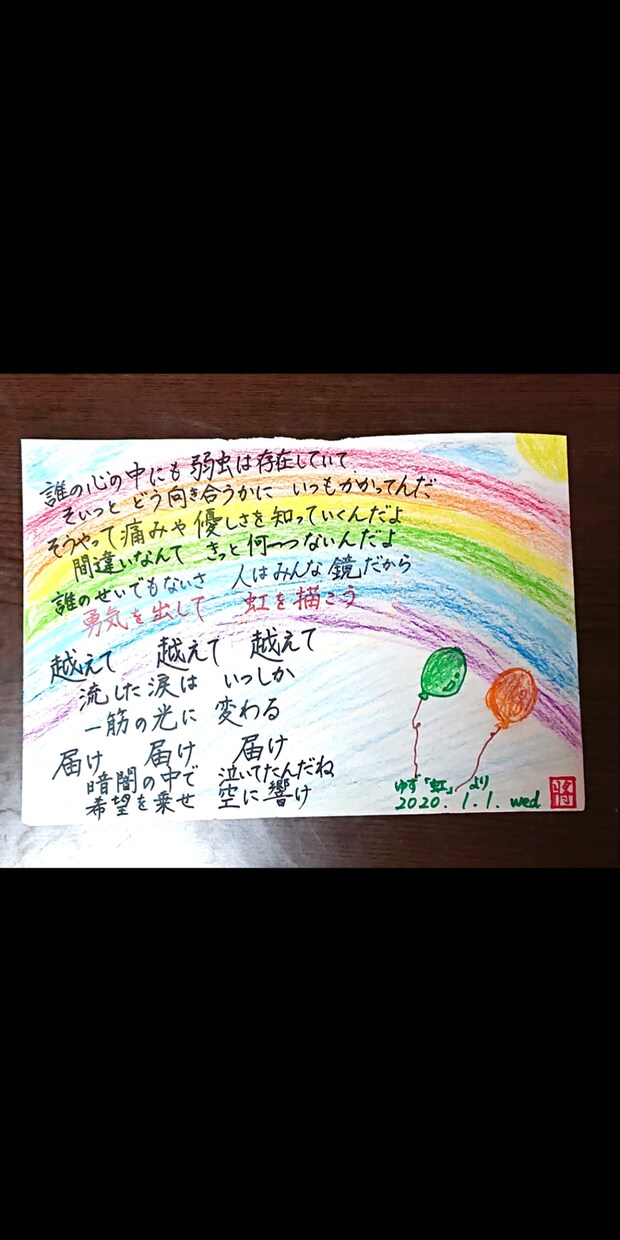 誰の心の中にも弱虫は存在していて
そいつと どう向き合うかに いつもかかってんだ
そうやって痛みや優しさを知っていくんだよ
間違いなんて きっと何一つないんだよ
誰のせいでもないさ 人はみんな鏡だから
勇気を出して 虹を描こう
越えて 越えて 越えて
流した涙は いつしか
一筋の光に 変わる
届け 届け 届け
暗闇の中で 泣いてたんだね
希望を乗せ 空に響け
ゆず「虹」より
2020.1.1. wed